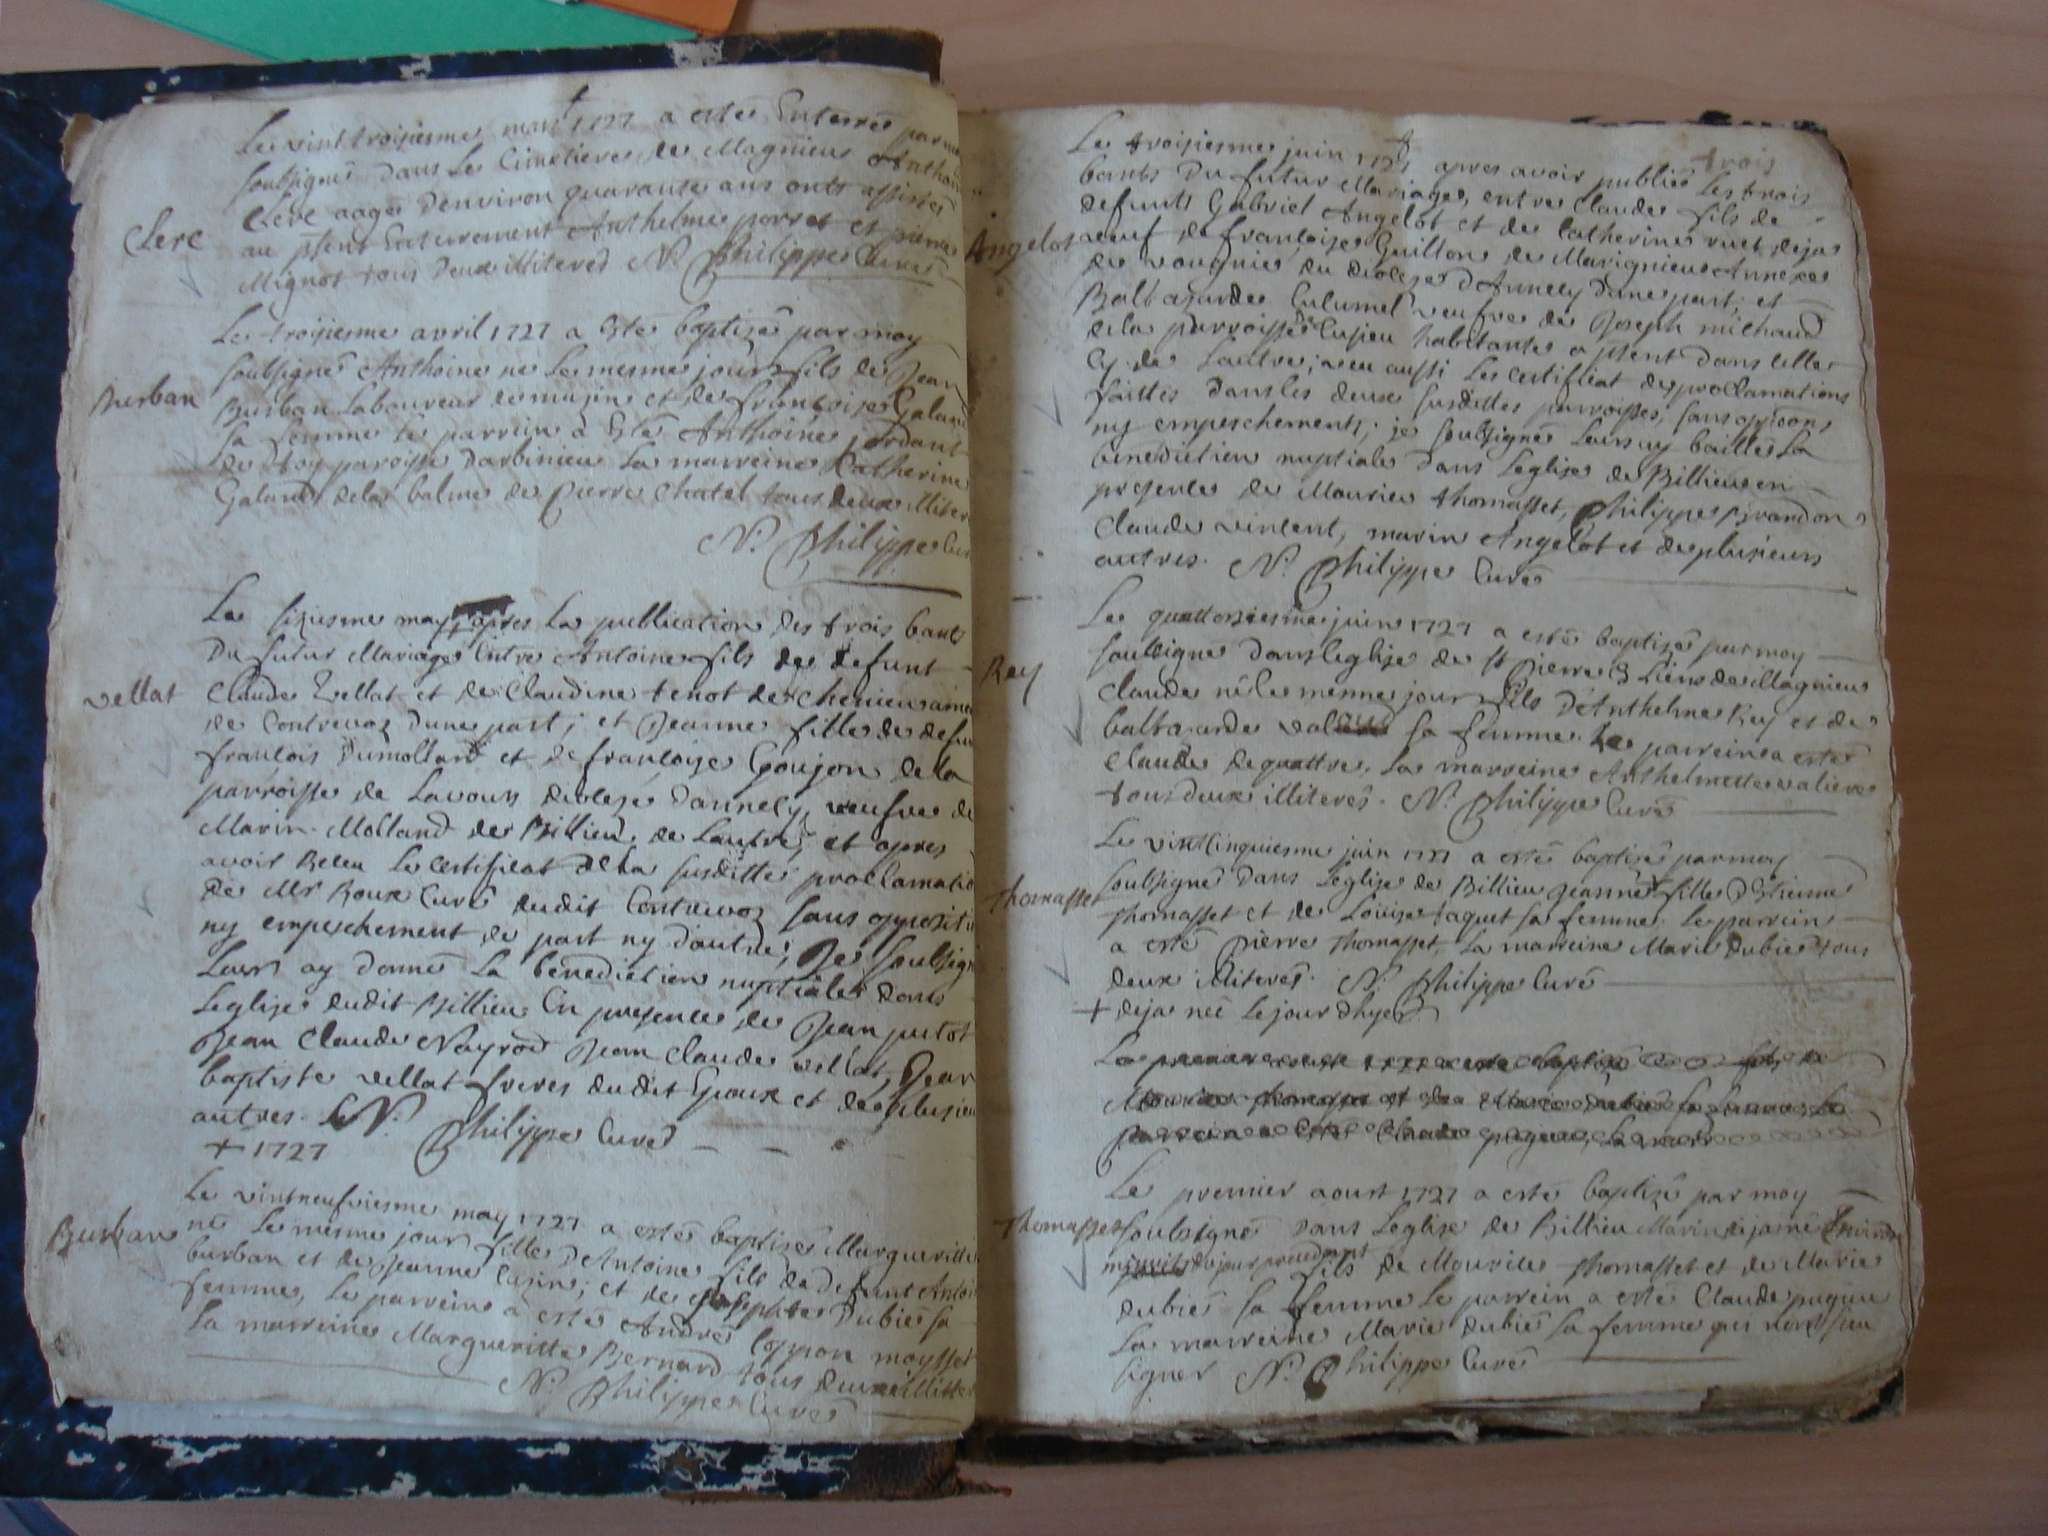 Le vint troisiesme mars 1727 a esté Enterré par moy
soubsigné dans Le Cimetiere de Magnieux Anthoine
Clerc
Clerc aagé denviron quarante ans onts assistés
au psent Enterrement Anthelme porret et pierre
Mignot tous deux illiterés N. Philippe Curé
Le troisiesme avril 1727 a Esté baptisé par moy
soubsigné Anthoine né Le mesme jour fils de Jean
Burban
Burban Laboureur et de françoise Galand
sa femme Le parrein a Esté Anthoine jordant
de paroisse darbinieu La marreine Catherine
Galand de la balme de Pierre Chatel tous deux illiter
N. Philippe Cur
Le sixiesme may apres La publication des trois bants
Du futur Mariage Entre Antoine fils de defunt
vellat
Claude Vellat et de Claudine tenot de
de Contrevoz Dune part; et Jeanne fille de defun
francois Dumollard et de françoise Goujon de la
parroisse de Lavours diocese d'annecy, veufve de
Marin Molland de Billieu de Lautre; et apres
avoir Receu Le Certificat de La susditte proclamatio
de Mr Roux Curé dudit Contrevoz sans oppositi
ny empeschement de part ny d'autre; Je soubsign
Leurs ay donné La benediction nuptiale dans
Leglise dudit Billieu En presence de Jean jutot
Jean Claude Nayrod Jean Claude vellat, Jean
baptiste vellat freres dudit Epoux et de plusieu
autres. N. Philippe Curé
+ 1727
Le vintneufviesme may 1727 a esté baptisé Margueritte
Burban
né Le mesme jour fille d'Antoine fils de defunt Antoi
burban et de Jeanne Cusin; et de Josephte Dubié sa
femme, Le parrein a esté André Coppon moysset
La marreine Margueritte Bernard tous deux illitter
N. Philippe Curé
Le troisiesme juin 1727 apres avoir publié Les trois
trois
bants Du futur Mariage, entre Claude fils de
defunts Gabriel Angelot et de Catherine ruet deja
Angelot
veuf de françoise Guillon de Marignieu Annexe
de vougnie du diocese d'Annecy d'une part; et
Baltazarde Calumel veufve de Joseph michaud
de la parroisse de Cusieu habitante a psent dans celle
cy de Lautre; veu aussi Les Certificat de proclamations
faittes Dans les deux susdittes parroisses, sans opp͠oons
ny empeschements; je soubsigné Leurs ay baillé La
benediction nuptiale dans Leglise de Billieu en
presence de Maurice thomasset, Philippe Brandon
Claude vincent, marin Angelot et de plusieurs
autres. N. Philippe Curé
Le quattorziesme juin 1727 a esté baptisé par moy
soubsigné dans leglise de St Pierre es Liens de Magnieu
Rey
Claude né Le mesme jour fils d'Anthelme Rey et de
baltazarde sa femme. Le parrein a esté
Claude de quattre. La marreine Anthelmette valiere
tous deux illiterés. N. Philippe Curé
Le vintcinquiesme juin 1727 a esté baptisé par moy
soubsigné dans Leglise de Billieu jeanne + fille d'Etienne
thomasset
thomasset et de Louise taquet sa femme. Le parrein
a esté pierre thomasset, La marreine Marie dubié tous
deux illiterés. N. Philippe Curé
+ deja née Le jour d'hyer
Le premier aoust 1727 a esté baptisé fils de
Maurice thomasset et de Marie dubié sa femme. Le
parrein a Esté Claude pugieu, La marr
Le premier aoust 1727 a esté baptisé par moy
thomasset
soubsigné dans Leglise de Billieu Marin deja né Environ
minuit du jour precedent fils de Maurice thomasset et de Marie
dubié sa femme Le parrein a esté Claude pugieu
La marreine Marie dubié sa femme qui n'ont sceu
signer N. Philippe Curé